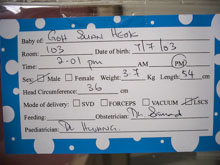 Baby of: GOH SUAN HEOK
Room: 103 Date of birth: 7/7/03
Time: 2-01 pm AM PM
Sex: Male Female Weight: 3.7 Kg Length: 54 cm
Head Circumference: 36 cm
Mode of delivery: SVD FORCEPS VACUUM LSCS
Feeding: Obstetrician: Dr.
Paediatrician: Dr HWANG.